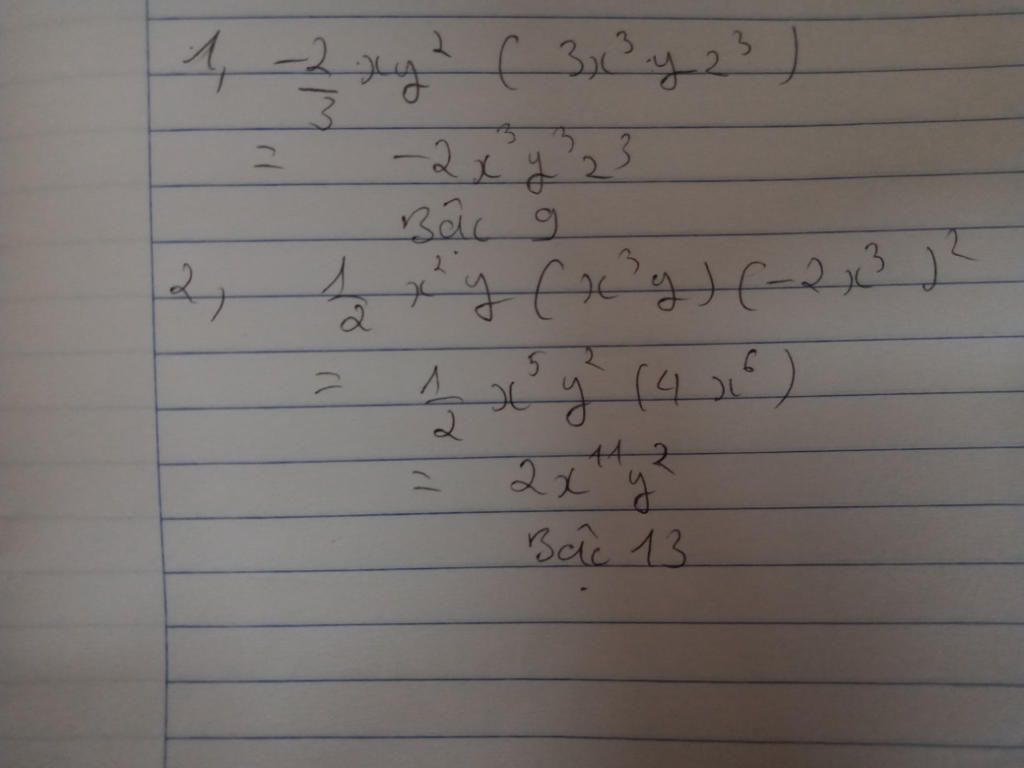 1, -2/3 xy² ( 3x³ . yz³ )
= -2x³y³z³
Bậc 9
2, 1/2 x²y (x³y) (-2x³)²
= 1/2 x⁵y² (4x⁶)
= 2x¹¹y²
Bậc 13